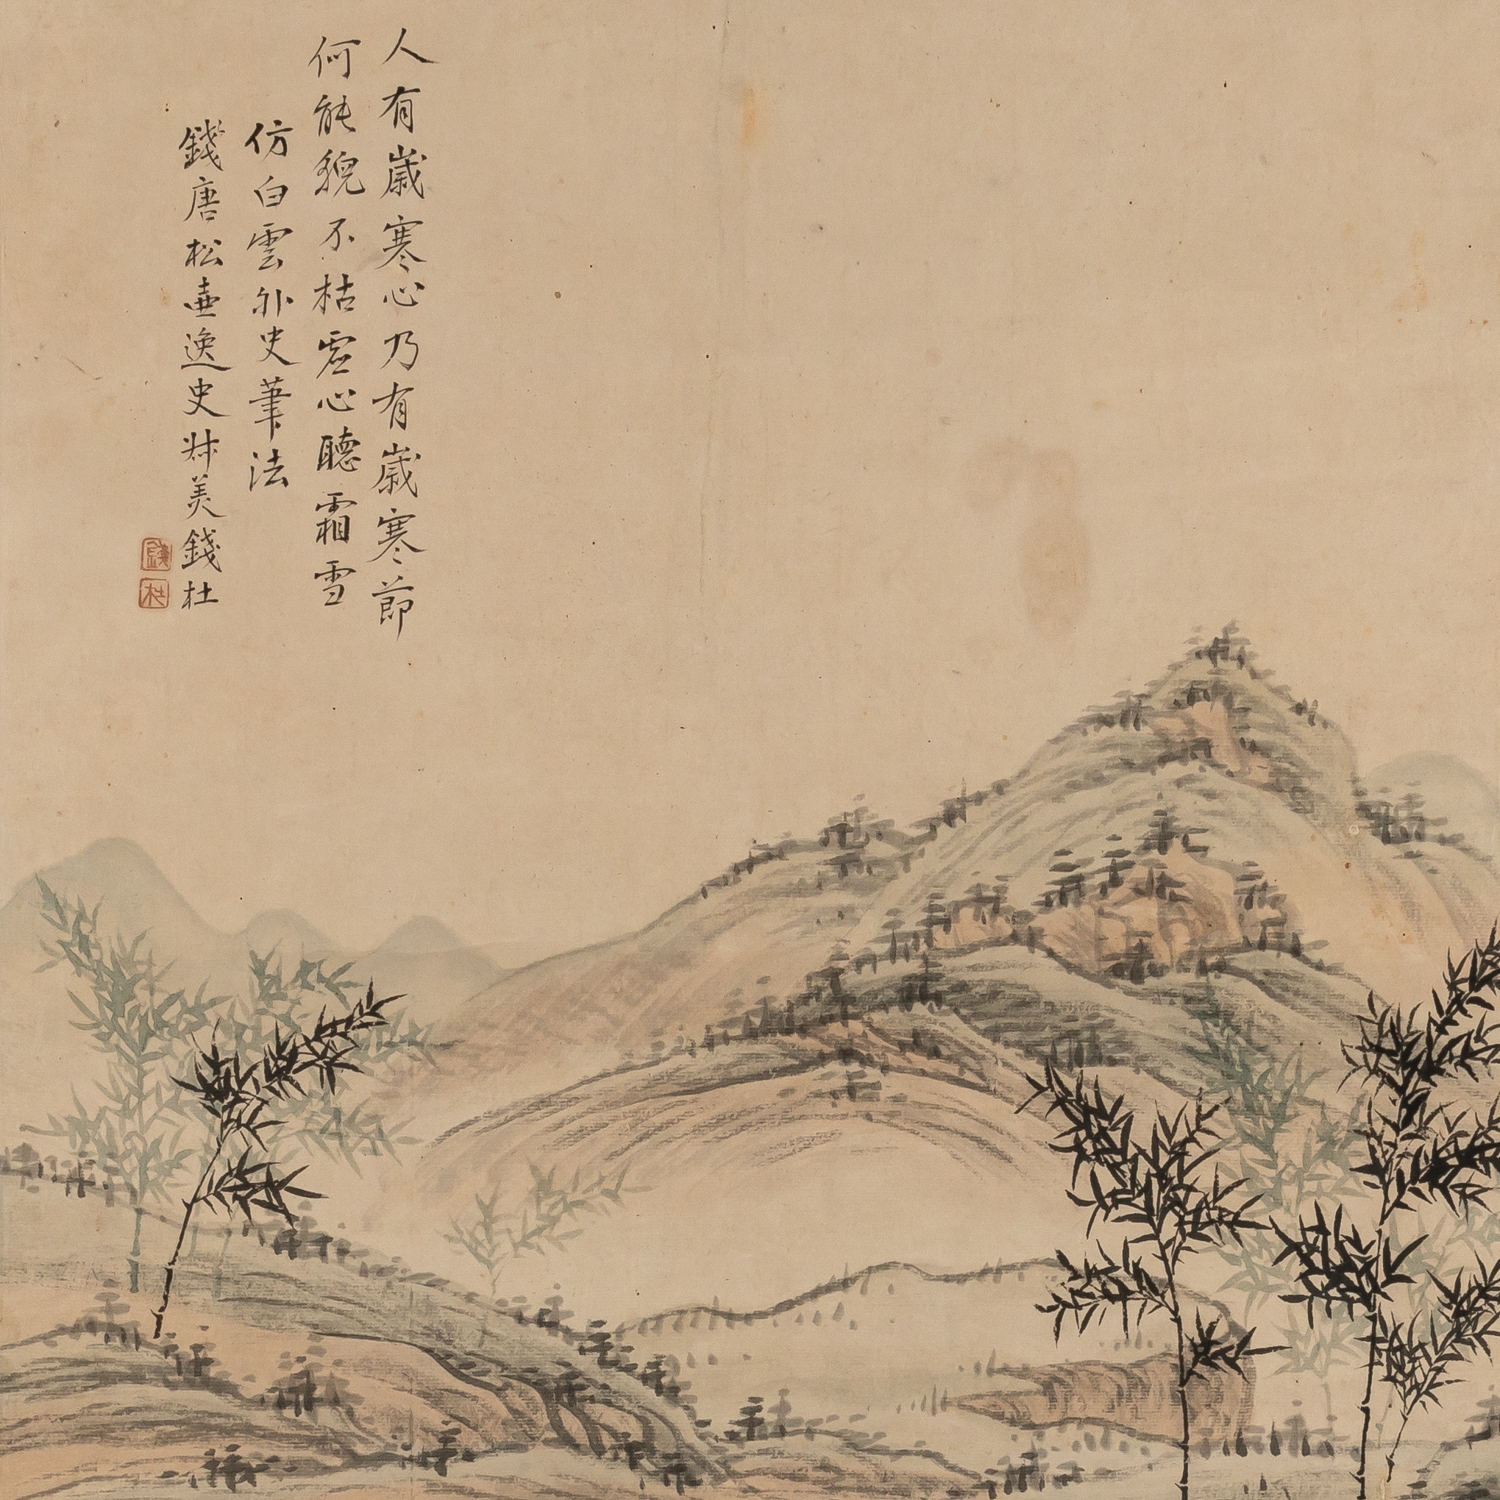 人有歲寒心乃有歲寒節
何能貌不枯虛心聽霜雪
仿白雲外史筆法
錢唐松壺逸史叔美錢杜
錢
杜